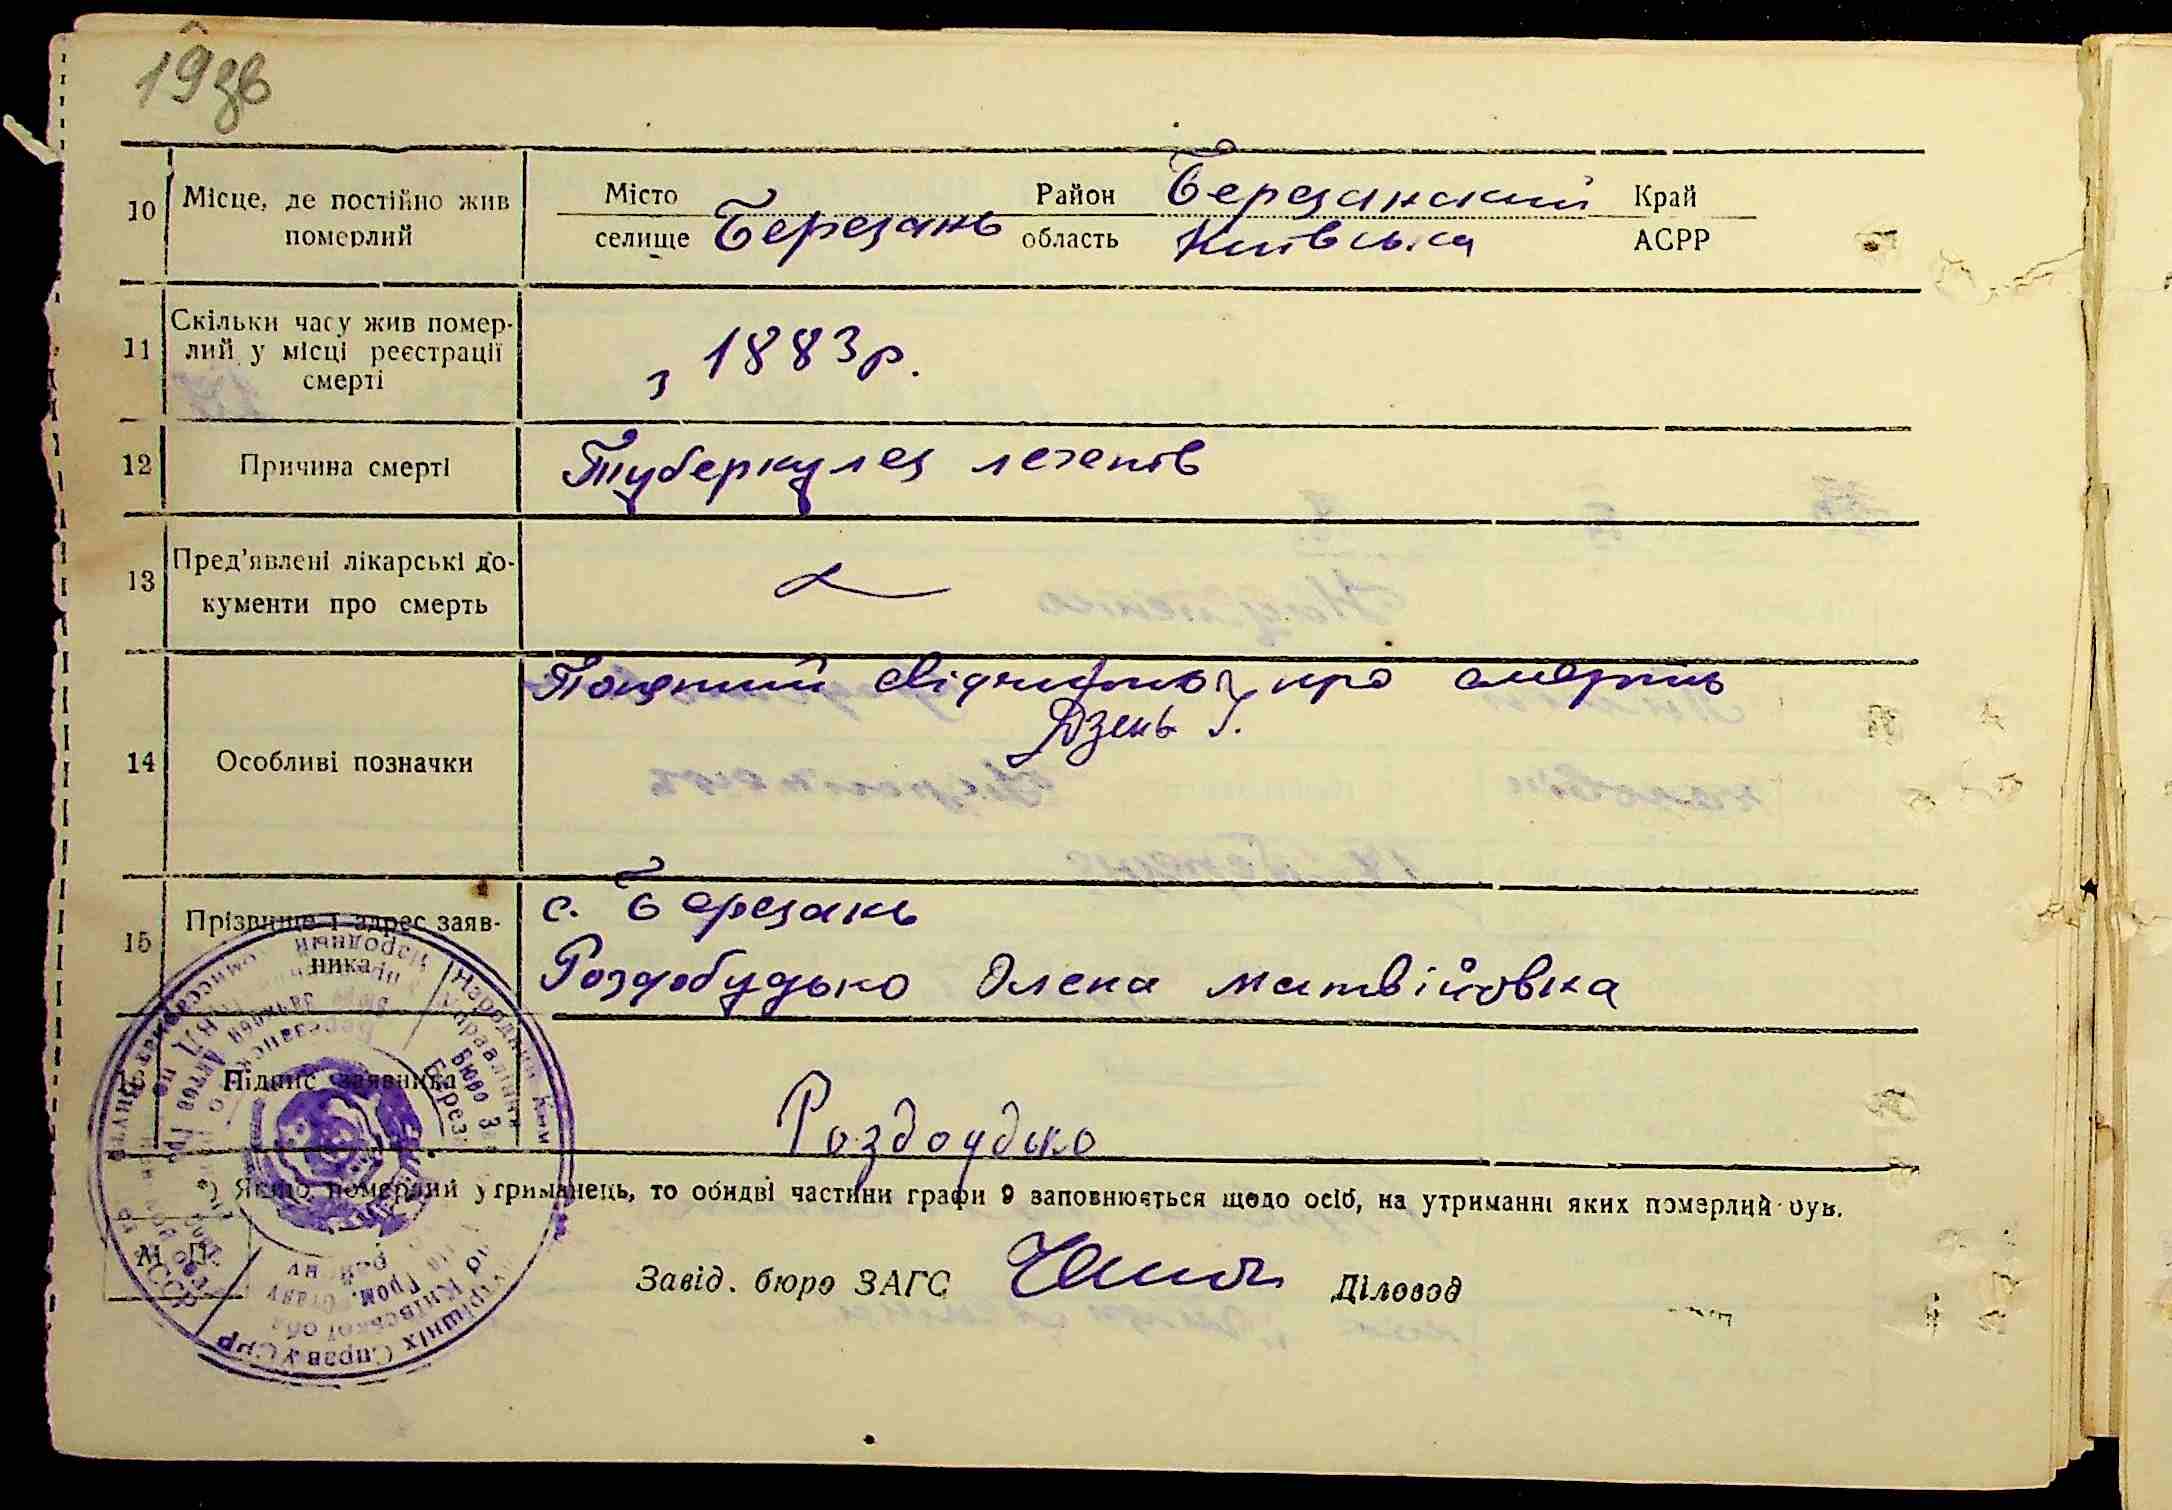 19зв
10 Місце, де постійно жив померлий
Місто селище Березань Район Березанский Край
область Київська АСРР
11 Скільки часу жив помер-
лий у місці реєстрації
смерті
з 1883 р.
12 Причина смерті Туберкулез легенів
13 Пред'явлені лікарські до-
кументи про смерть
14 Особливі позначки
про смерть
Дзень
15 Прізвище і адрес заяв-
ника
с. Березань
Роздобудько Олена Матвійовна
16 Підпис заявника
Роздоудько
Якщо померлий утриманець, то обидві частини графи 9 заповнюється щодо осіб, на утриманні яких померлий був.
М. П.
Завід. бюро ЗАГС Діловод